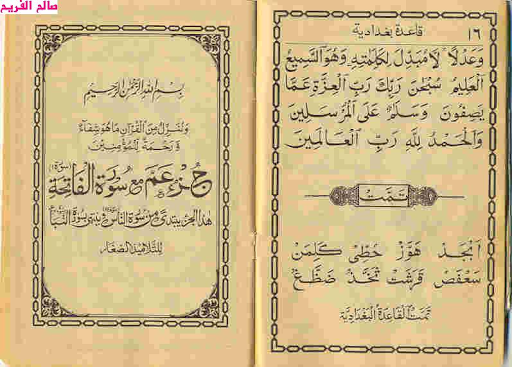 صالح الفريح
١٦
قاعدة بغدادية
وَعَدْلًا لَا مُبَدِّلَ لِكَلِمَٰتِهِ وَهُوَ السَّمِيعُ
الْعَلِيمُ سُبْحَٰنَ رَبِّكَ رَبِّ الْعِزَّةِ عَمَّا
يَصِفُونَ وَسَلَٰمٌ عَلَى الْمُرْسَلِينَ
وَالْحَمْدُ لِلَّهِ رَبِّ الْعَالَمِينَ
تمت
أَبْجَدْ هَوَّزْ حُطِّي كَلِمَنْ
سَعْفَصْ قَرَشَتْ ثَخَذْ ضَظَغْ
تمت القاعدة البغدادية
بسم الله الرحمن الرحيم
وننزل من القرآن ما هو شفاء
ورحمة للمؤمنين
جزء عم مع سورة الفاتحة
هذا الجزء يبتدئ من سورة الناس وينتهي بسورة النبأ
للتلاميذ الصغار